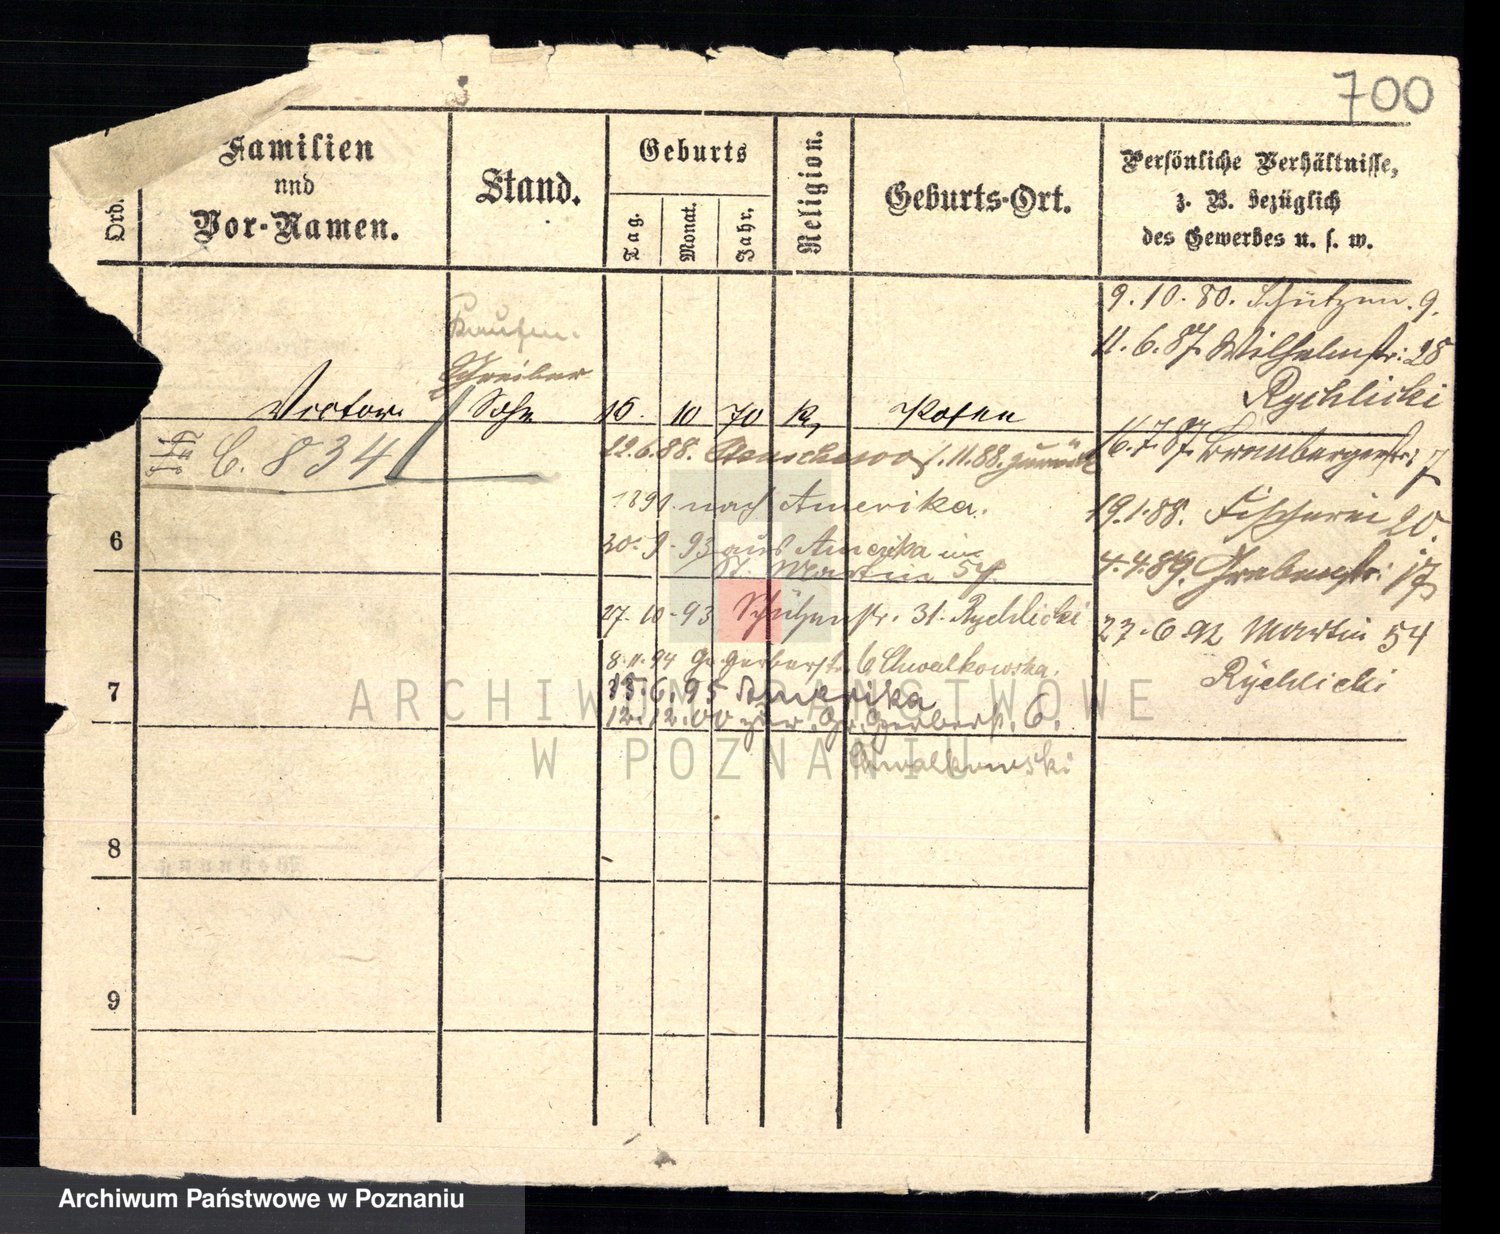 700
Familien
und
Vor-Namen.
Stand.
Geburts
Tag.
Monat.
Jahr.
Religion.
Geburts-Ort.
Persönliche Verhältnisse,
z. B. bezüglich
des Gewerbes u. s. w.
Ord.
9. 10. 80. Schützen. 9.
11. 6. 87. Wilhelmstr: 28
Rychlicki
Kaufm.
Schreiber
Victor. Sohn 16. 10 70 K, Posen
C. 834
12.6.88. Stenschewo 1.11.88. zurück
16.7.87. Brombergerstr: 7
1891 nach Amerika.
19.1.88. Fischerei 20.
6
30. 9. 93 aus Amerika in
St. Martin 54.
4.4.89. Grabenstr: 17
27. 10. 93 Schützenstr. 31. Rychlicki
27. 6. 92 Martin 54
Rychlicki
8. 11. 94 Gr. Gerberstr. 6 Chwalkowska.
7
15. 6. 95 Amerika
12. 12. 00 zur. Gr. Gerberst. 6.
Chwalkowski
ARCHIWUM PAŃSTWOWE
W POZNANIU
8
9
Archiwum Państwowe w Poznaniu